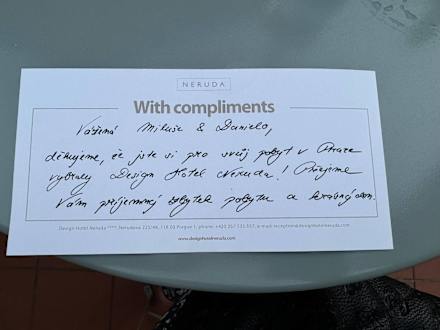 NERUDA
With compliments
Vážená Miluše & Danielo,
děkujeme, že jste si pro svůj pobyt v Praze
vybraly Design Hotel Neruda! Přejeme
Vám příjemný zbytek pobytu a krásný den.
Design Hotel Neruda ****, Nerudova 225/46, 118 00 Prague 1, phone: +420 257 535 557, e-mail: reception@designhotelneruda.com
www.designhotelneruda.com